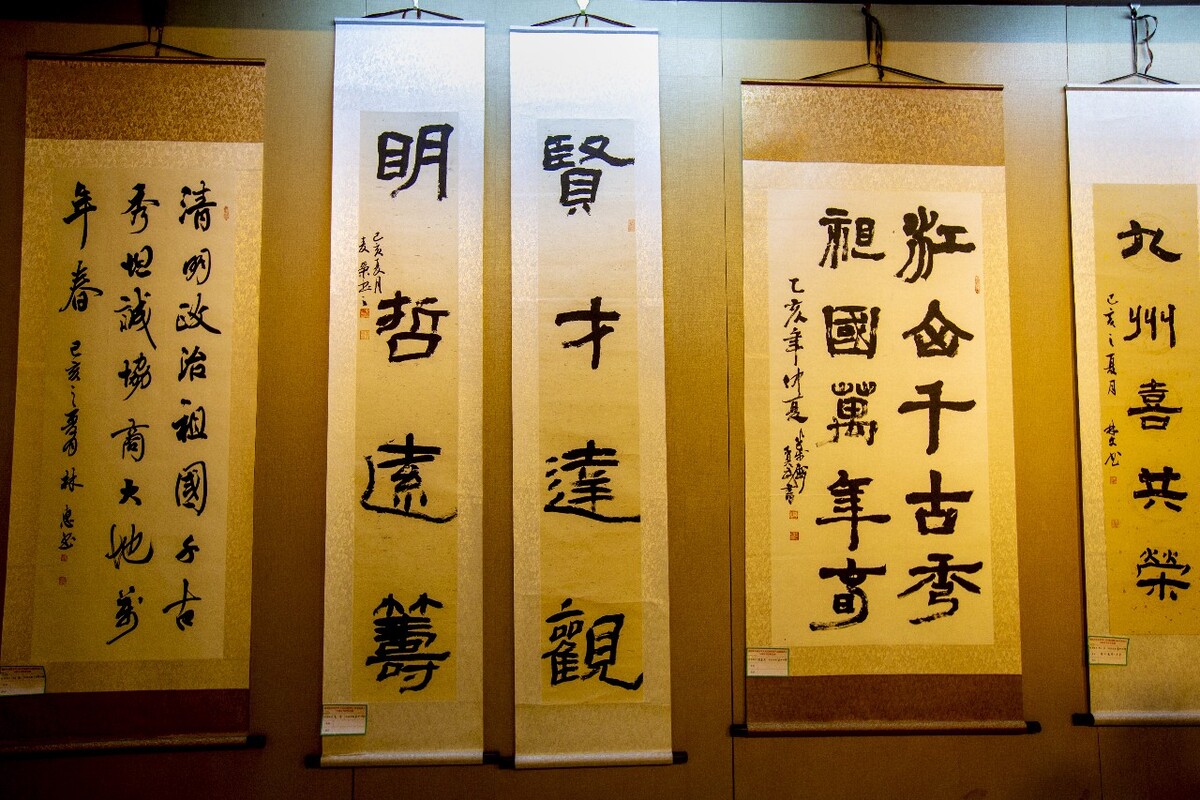 九州喜共榮
己亥之夏月
江山千古秀
祖國萬年春
乙亥年仲夏
賢才達觀
明哲遠籌
己亥夏月
清明政治祖國千古
秀坦誠協商大地萬
年春
己亥之夏月 林